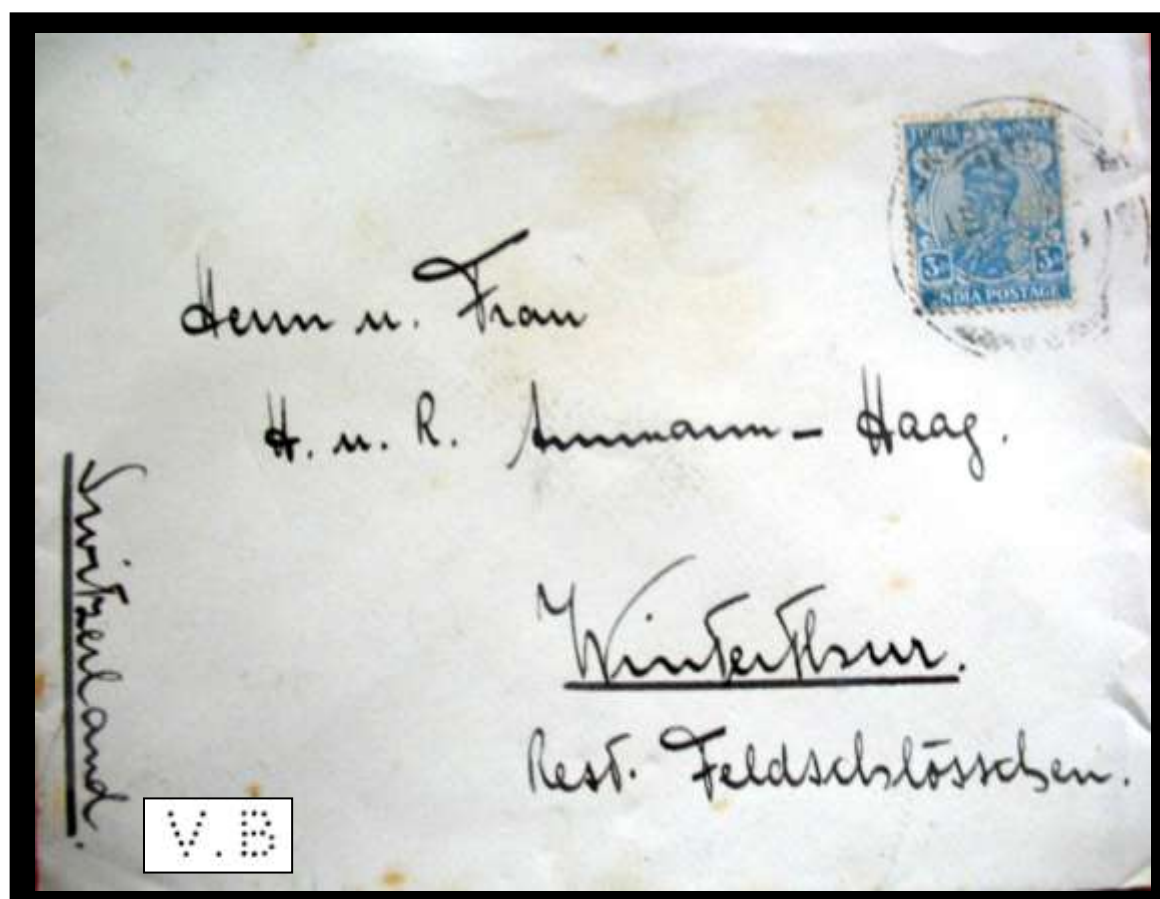 THREE ANNAS
3 As 3 As
INDIA POSTAGE
Herrn u. Frau
H. u. R. Ammann - Haag.
Winterthur.
Rest. Feldschlösschen.
Switzerland.
V.B